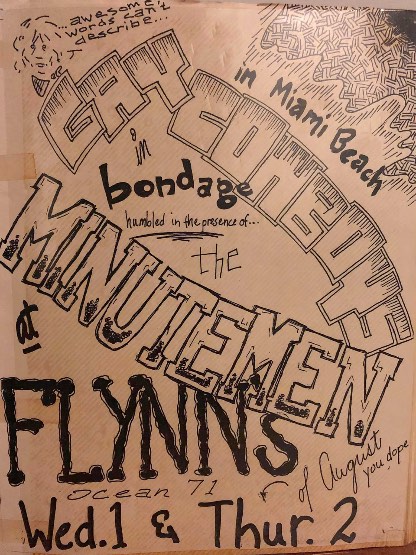 ...awesome
words can't
describe...
GAY COWBOYS
in
bondage
in Miami Beach
humbled in the presence of...
the
MINUTEMEN
at
FLYNNS
Ocean 71
of August
you dope
Wed. 1 & Thur. 2